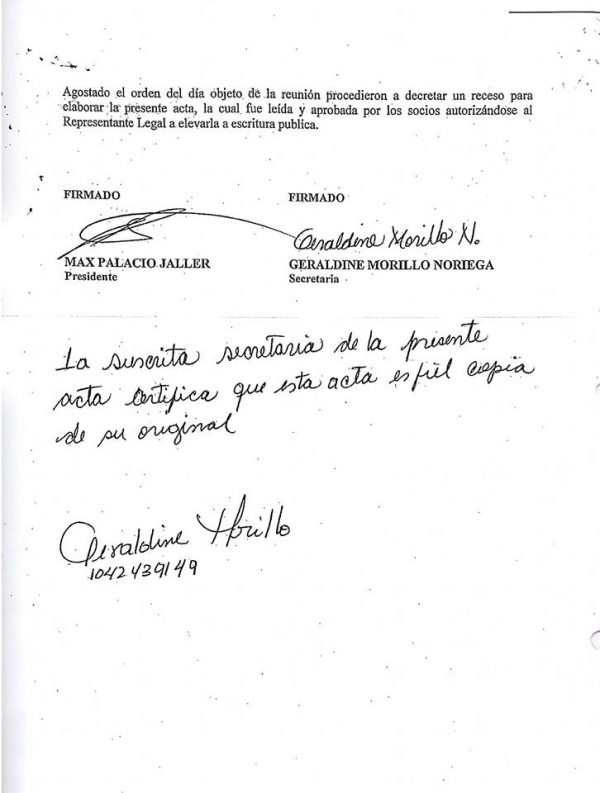 Agostado el orden del día objeto de la reunión procedieron a decretar un receso para
elaborar la presente acta, la cual fue leída y aprobada por los socios autorizándose al
Representante Legal a elevarla a escritura publica.
FIRMADO
FIRMADO
Geraldine Morillo N.
MAX PALACIO JALLER
GERALDINE MORILLO NORIEGA
Presidente
Secretaria
La suscrita secretaria de la presente
acta certifica que esta acta es fiel copia
de su original
Geraldine Morillo
1042439149